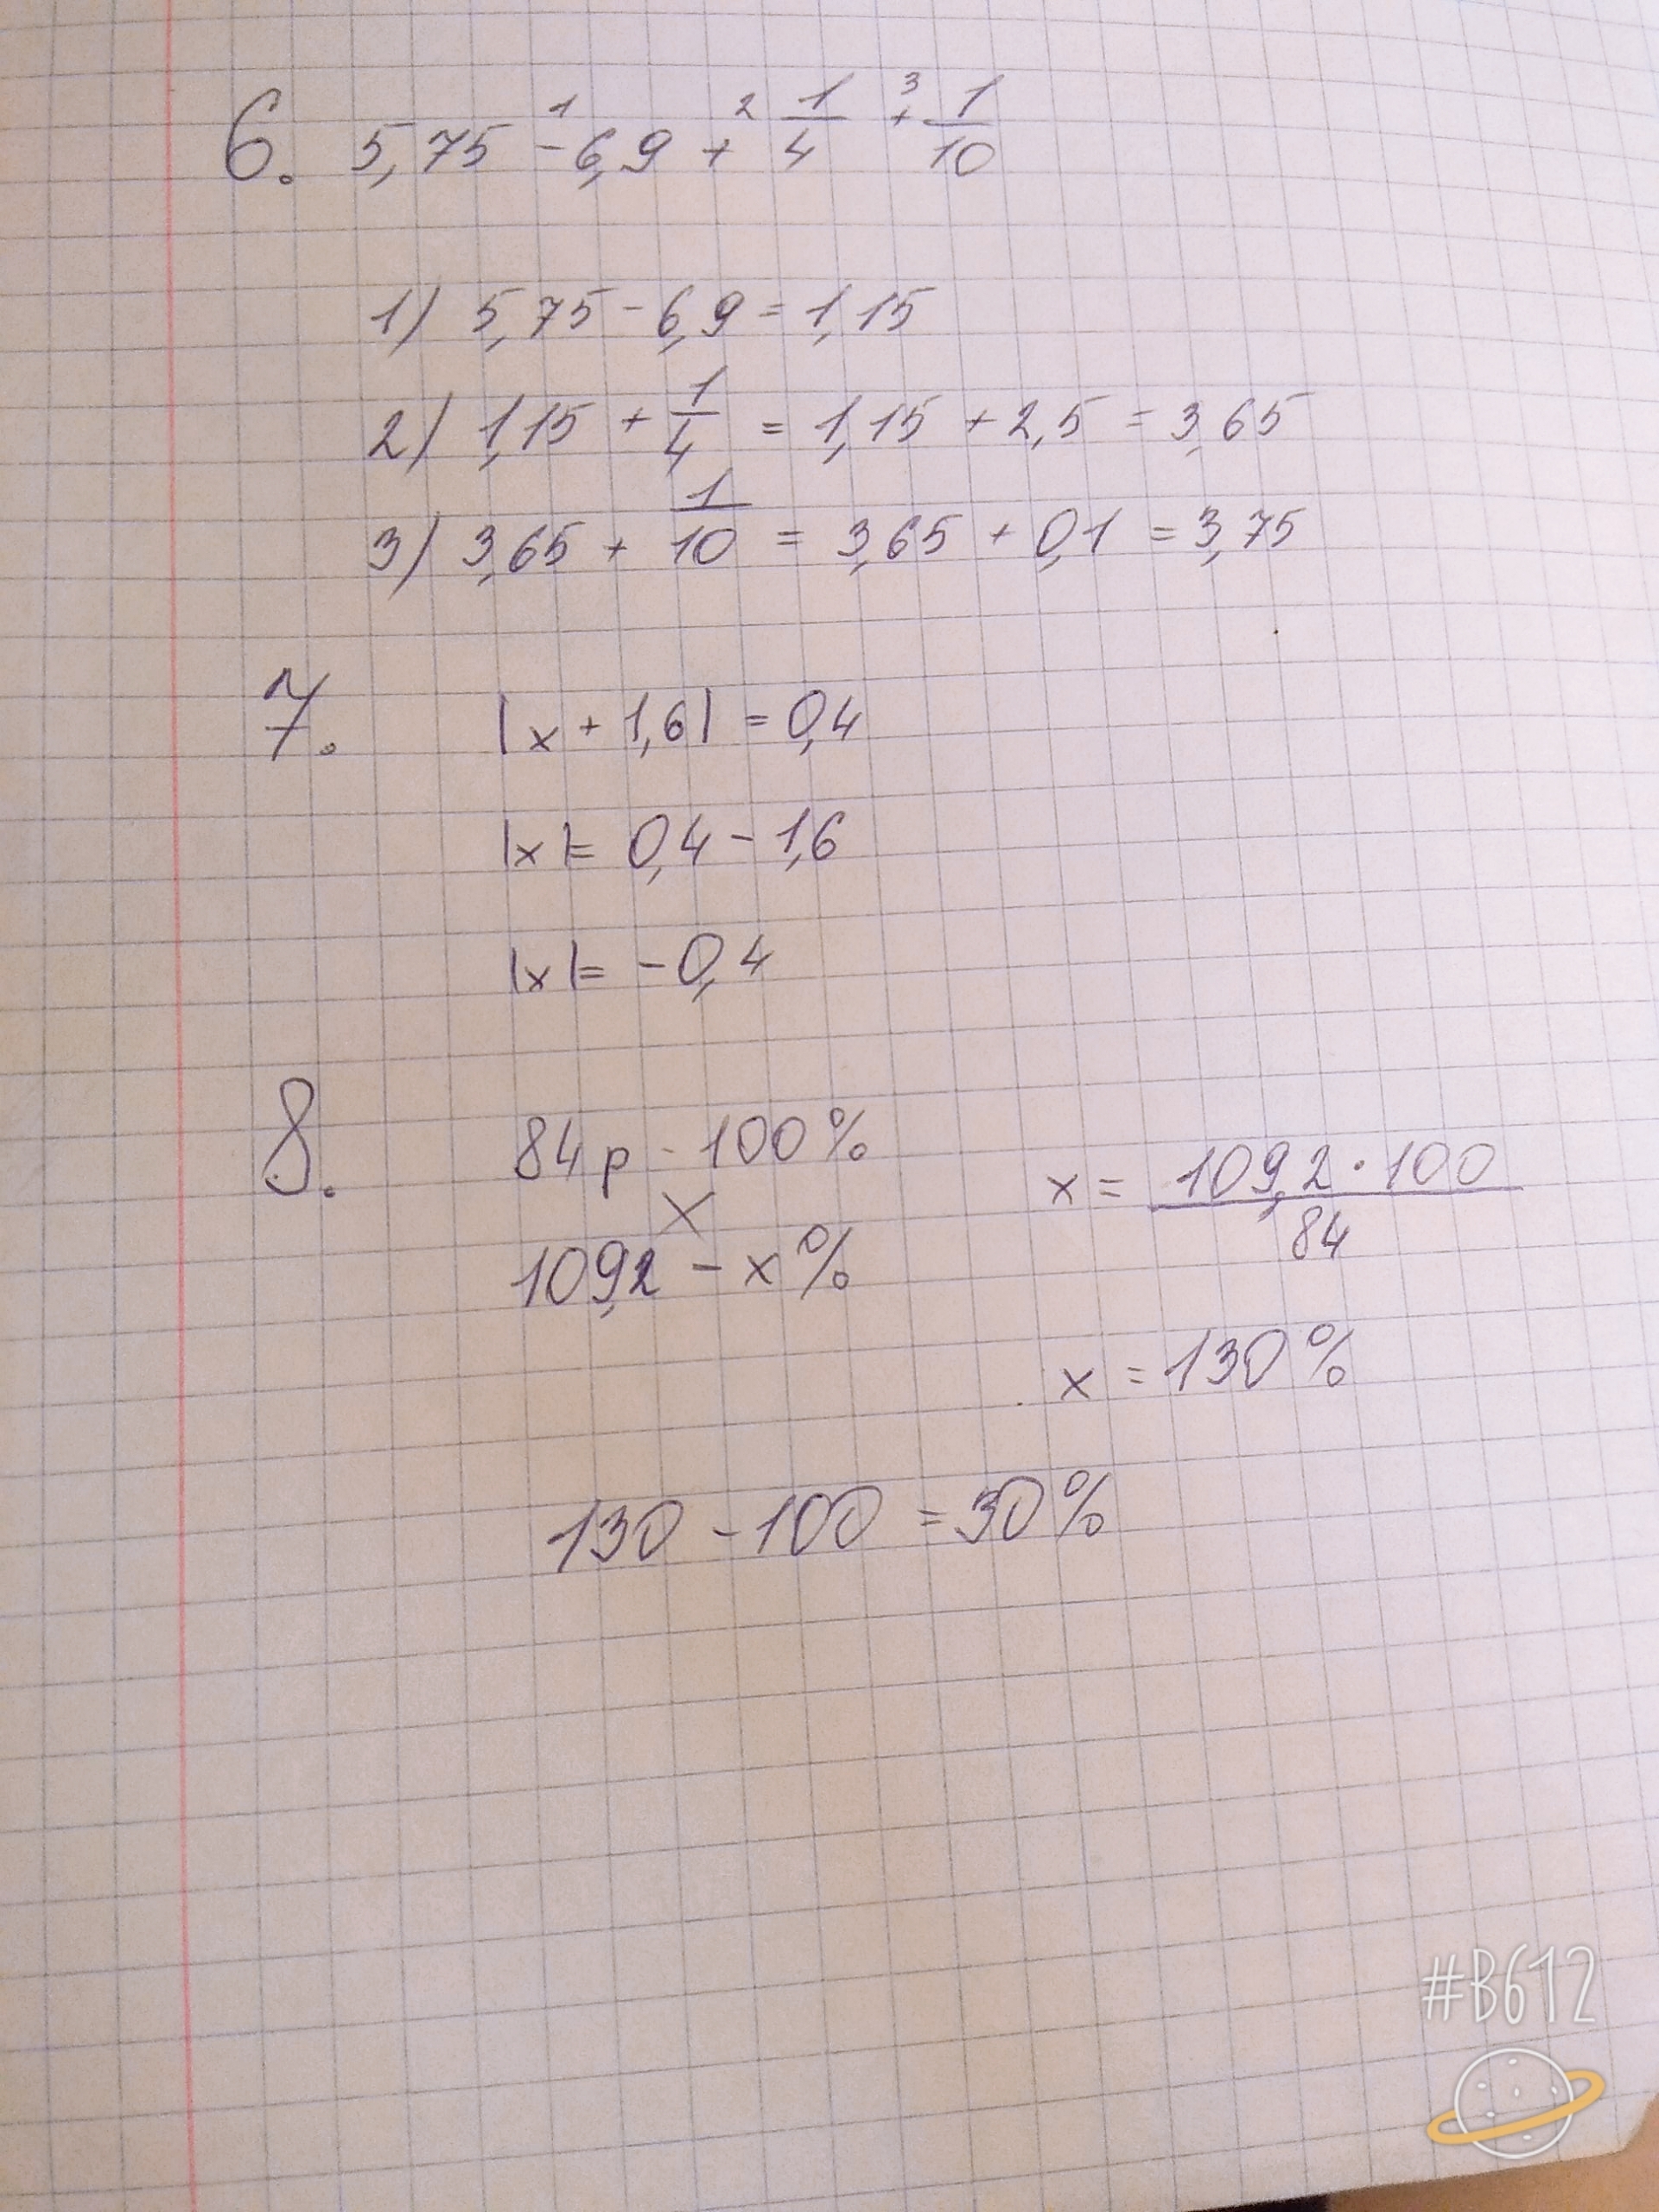 6. 5,75 - 6,9 + 1/4 + 1/10
1 2 3
1) 5,75 - 6,9 = 1,15
2) 1,15 + 1/4 = 1,15 + 2,5 = 3,65
3) 3,65 + 1/10 = 3,65 + 0,1 = 3,75
7. |x + 1,6| = 0,4
|x| = 0,4 - 1,6
|x| = -0,4
8. 84р - 100%
109,2 - x%
x = 109,2 · 100 / 84
x = 130%
130 - 100 = 30%
#B612